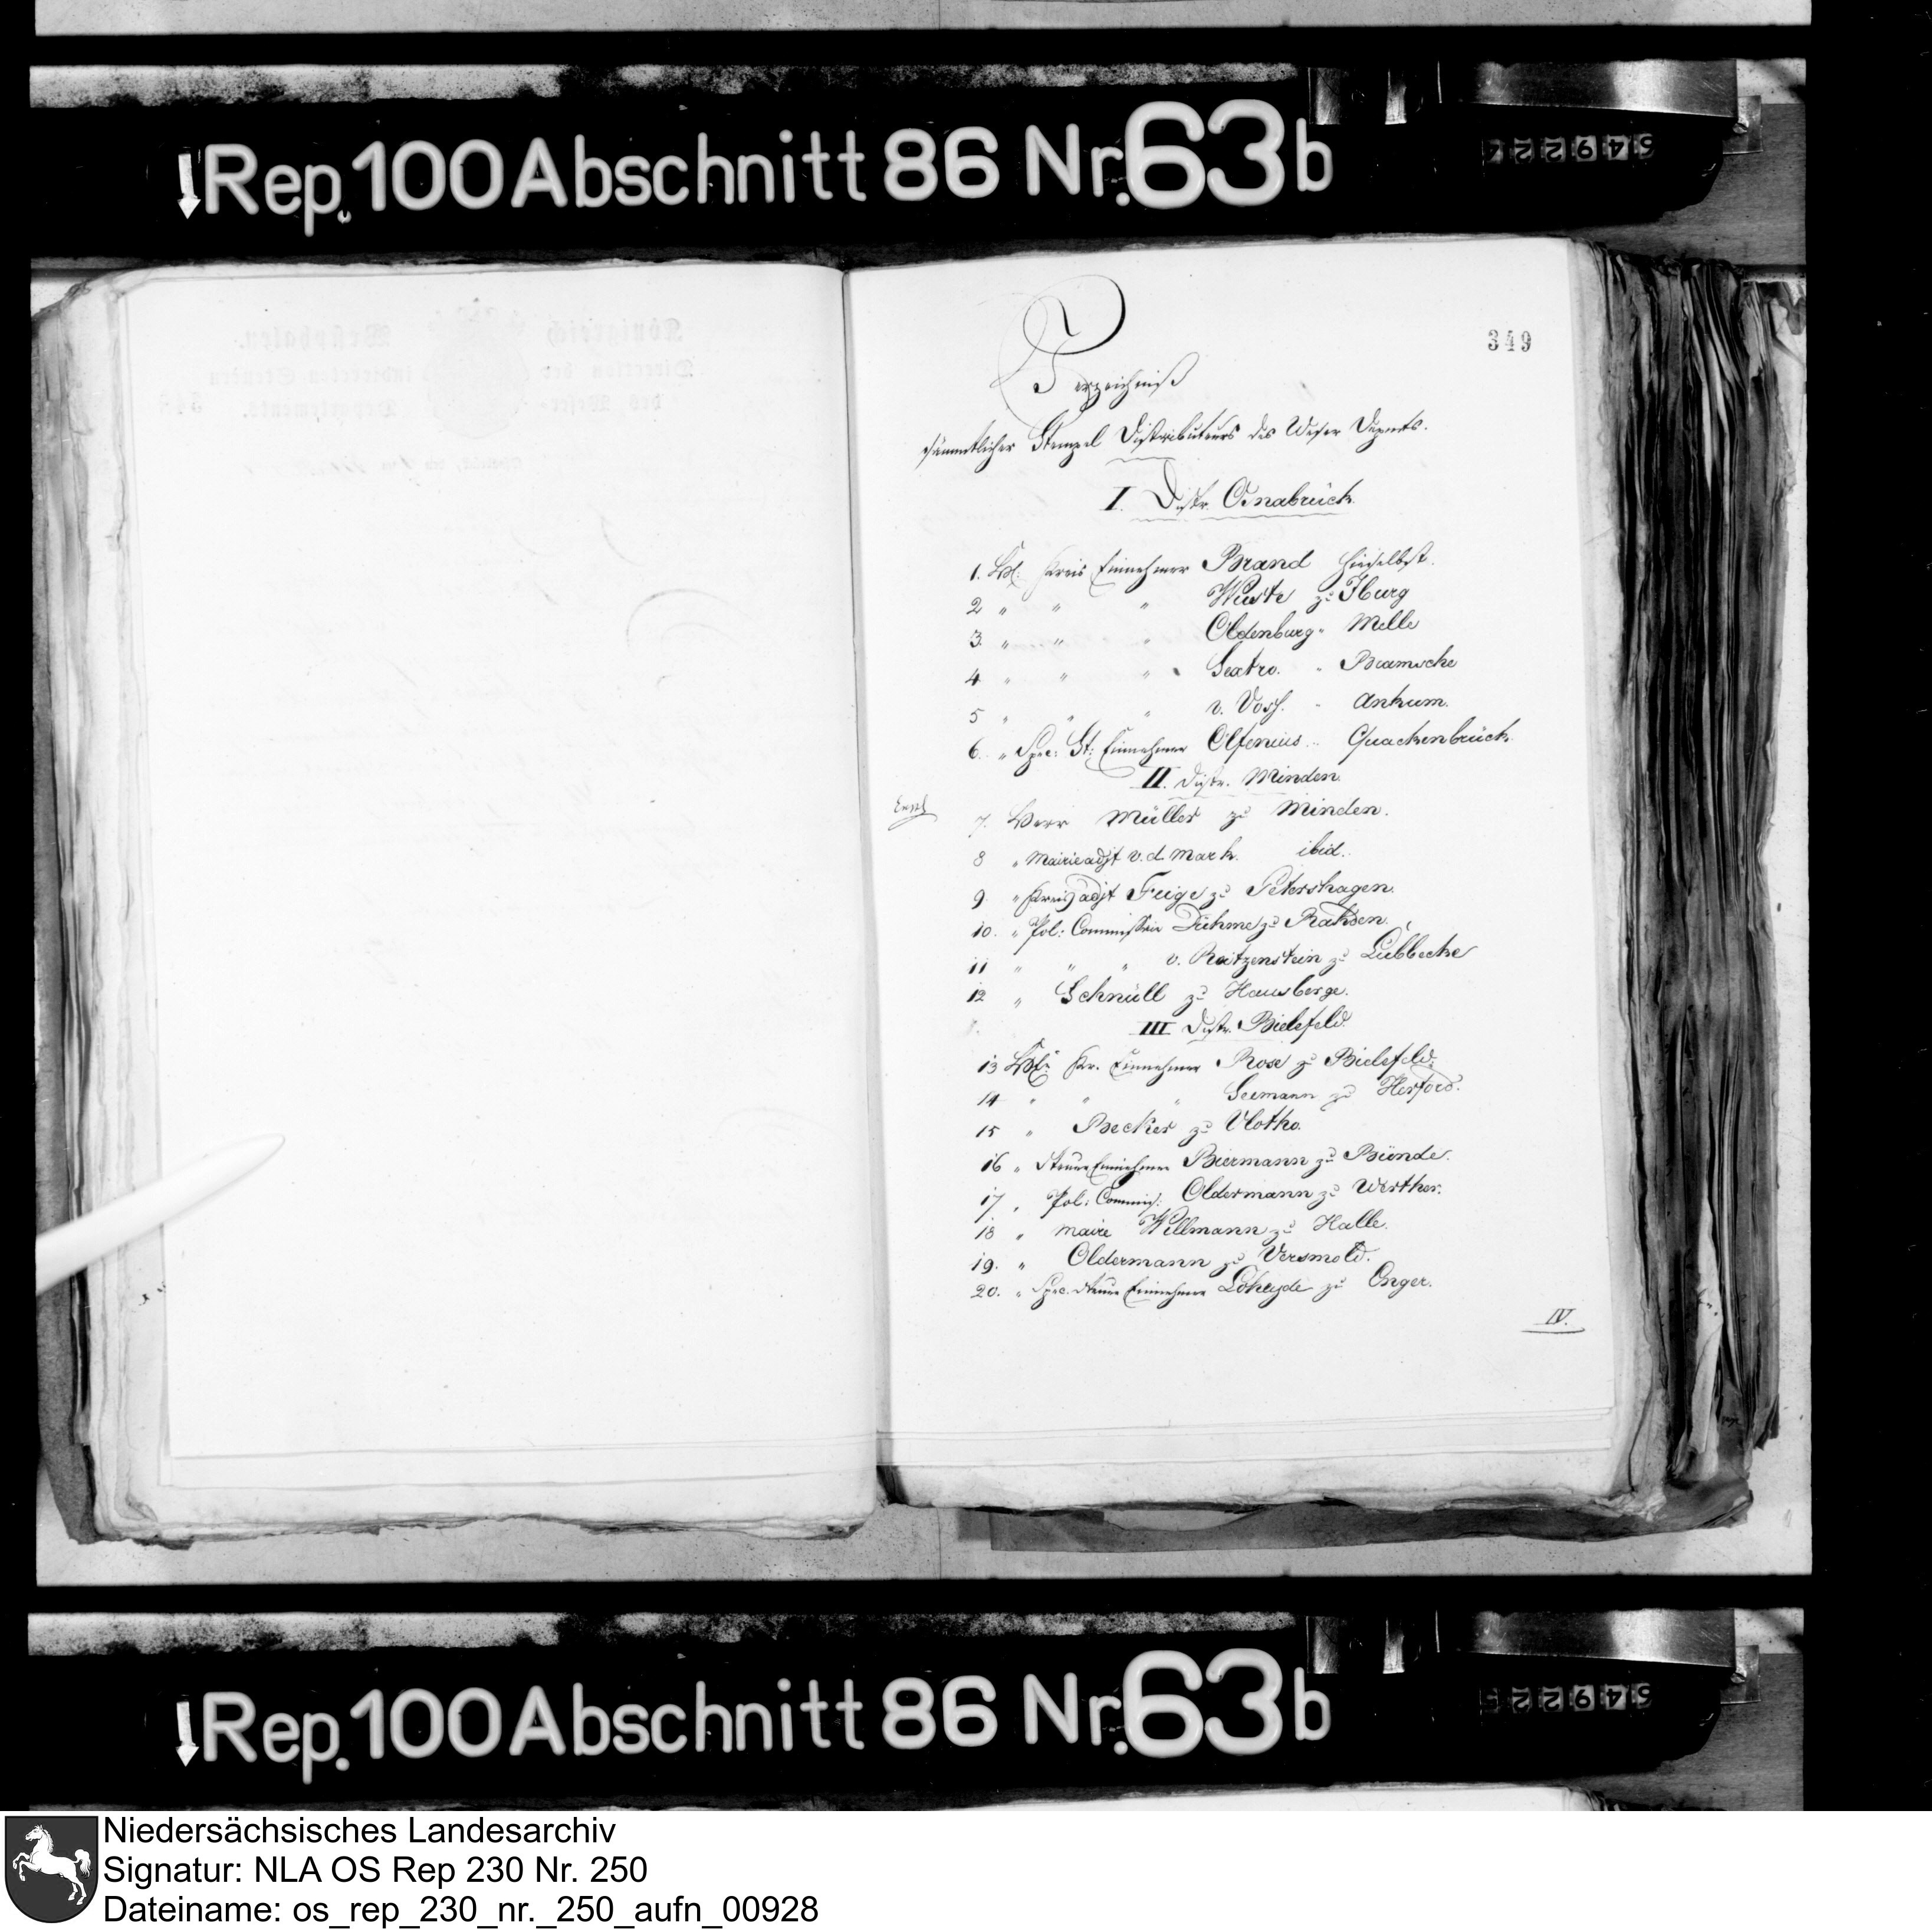 Rep. 100 Abschnitt 86 Nr. 63 b
549224
349
Verzeichniß
sämmtlicher Stempel Distributeurs des Weser Departs.
I. Distr. Osnabrück.
1. Kreis Einnehmer Brand hieselbst.
2 " " " Wuste zu Iburg
3. " " " Oldenburg " Melle
4 " " " Sextro. " Bramsche
5 " " " v. Voss. " Ankum.
6. " Spec: St: Einnehmer Olfenius " Quackenbrück.
II. Distr. Minden.
7. Herr Müller zu Minden.
8 " Mairieadjt v. d. Mark. ibid.
9. " Kreisadjt Feige zu Petershagen.
10. " Pol: Commissair Dühme zu Rahden.
11 " " " v. Reitzenstein zu Lübbecke
12 " Schnüll zu Hausberge.
III Distr. Bielefeld.
13 Kr. Einnehmer Rose zu Bielefeld.
14 " " " Seemann zu Herford.
15 " Becker zu Vlotho.
16 " Steuer Einnehmer Biermann zu Bünde.
17 " Pol: Commiss: Oldermann zu Werther.
18 " Maire Willmann zu Halle.
19. " Oldermann zu Versmold.
20. " Spec. Steuer Einnehmer zu Enger.
IV.
Rep. 100 Abschnitt 86 Nr. 63 b
549225
Niedersächsisches Landesarchiv
Signatur: NLA OS Rep 230 Nr. 250
Dateiname: os_rep_230_nr._250_aufn_00928